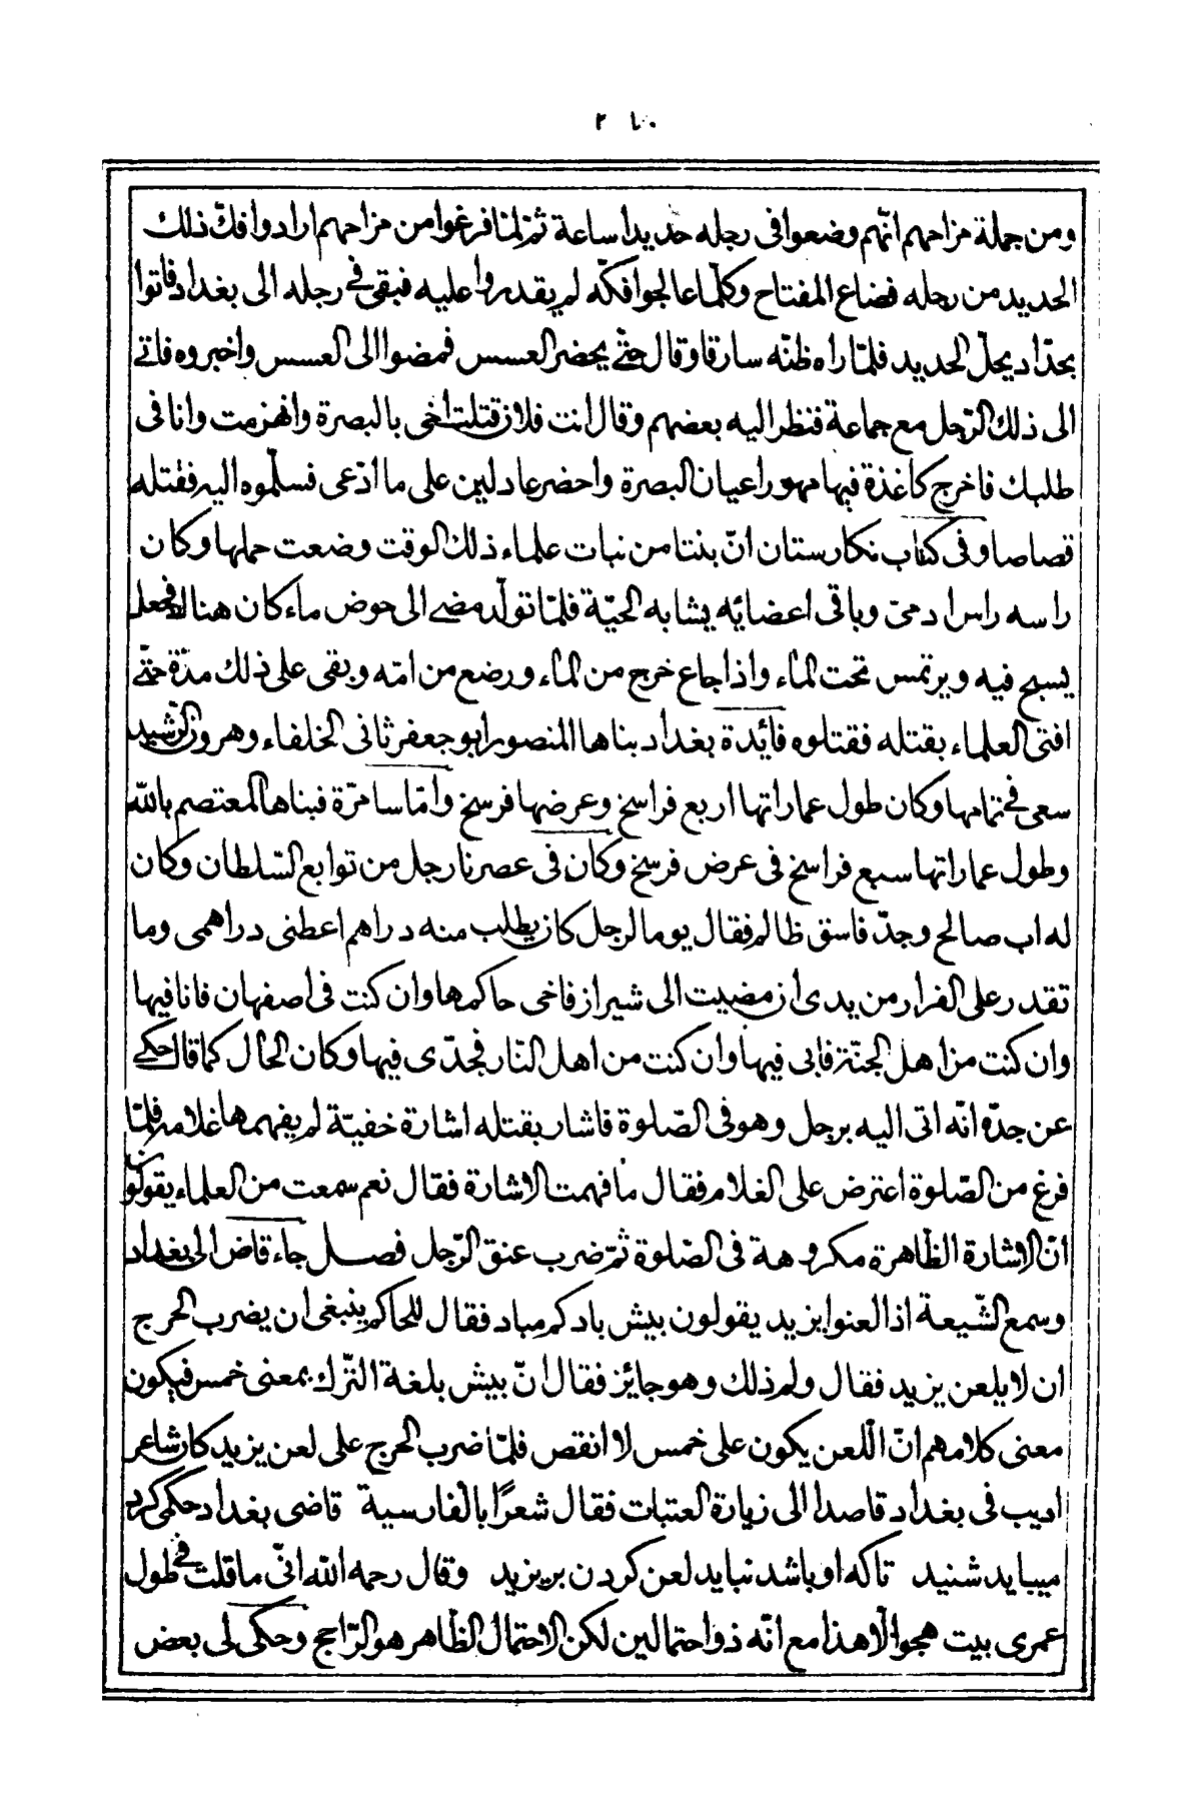 ومن جملة مزاحهم انّهم وضعوا فى رجله حديدا ساعة ثمّ لمّا فرغوا من مزاحهم ارادوا فكّ ذلك
الحديد من رجله فضاع المفتاح وكلّما عالجوا فكّه لم يقدروا عليه فبقى فى رجله الى بغداد فاتوا
بحدّاد يحلّ الحديد فلمّا راه ظنّه سارقا وقال حتّى يحضر العسس فمضوا الى العسس واخبروه فاتى
الى ذلك الرّجل مع جماعة فنظر اليه بعضهم وقال انت فلان قتلت اخى بالبصرة وانهزمت وانا فى
طلبك فاخرج كاغذة فيها مهور اعيان البصرة واحضر عادلين على ما ادّعى فسلّموه اليه فقتله
قصاصا وفى كتاب نكارستان انّ بنتا من نبات علماء ذلك الوقت وضعت حملها وكان
راسه راس ادمىّ وباقى اعضائه يشابه الحيّة فلمّا تولّد مضى الى حوض ماء كان هناك فجعل
يسبح فيه ويرتمس تحت الماء واذا جاع خرج من الماء ورضع من امّه وبقى على ذلك مدّة حتّى
افتى العلماء بقتله فقتلوه فائدة بغداد بناها المنصور ابو جعفر ثانى الخلفاء وهرون الرّشيد
سعى فى تمامها وكان طول عماراتها اربع فراسخ وعرضها فرسخ وامّا سامرّة فبناها المعتصم بالله
وطول عماراتها سبع فراسخ فى عرض فرسخ وكان فى عصرنا رجل من توابع السّلطان وكان
له اب صالح وجدّ فاسق ظالم فقال يوما لرجل كان يطلب منه دراهم اعطنى دراهمى وما
تقدر على الفرار من يدى ان مضيت الى شيراز فاخى حاكمها وان كنت فى اصفهان فانا فيها
وان كنت من اهل الجنّة فابى فيها وان كنت من اهل النّار فجدّى فيها وكان الحال كما قال حكى
عن جدّه انّه اتى اليه برجل وهو فى الصّلوة فاشار بقتله اشارة خفيّة لم يفهمها غلامه فلمّا
فرغ من الصّلوة اعترض على الغلام فقال ما فهمت الاشارة فقال نعم سمعت من العلماء يقولون
انّ الاشارة الظّاهرة مكروهة فى الصّلوة ثمّ ضرب عنق الرّجل فصل جاء قاض الى بغداد
وسمع الشّيعة اذا لعنوا يزيد يقولون بيش باد كم مباد فقال للحاكم ينبغى ان يضرب الحرج
ان لا يلعن يزيد فقال ولم ذلك وهو جايز فقال انّ بيش بلغة التّرك بمعنى خمس فيكون
معنى كلامهم انّ اللّعن يكون على خمس لا انقص فلمّا ضرب الحرج على لعن يزيد كان شاعر
اديب فى بغداد قاصدا الى زيارة العتبات فقال شعرًا بالفارسية قاضى بغداد حكمى كرد
ميبايد شنيد تاكه او باشد نبايد لعن كردن بر يزيد وقال رحمه الله انّى ما قلت فى طول
عمرى بيت هجو الّا هذا مع انّه ذو احتمالين لكن الاحتمال الظّاهر هو الرّاجح وحكى لى بعض